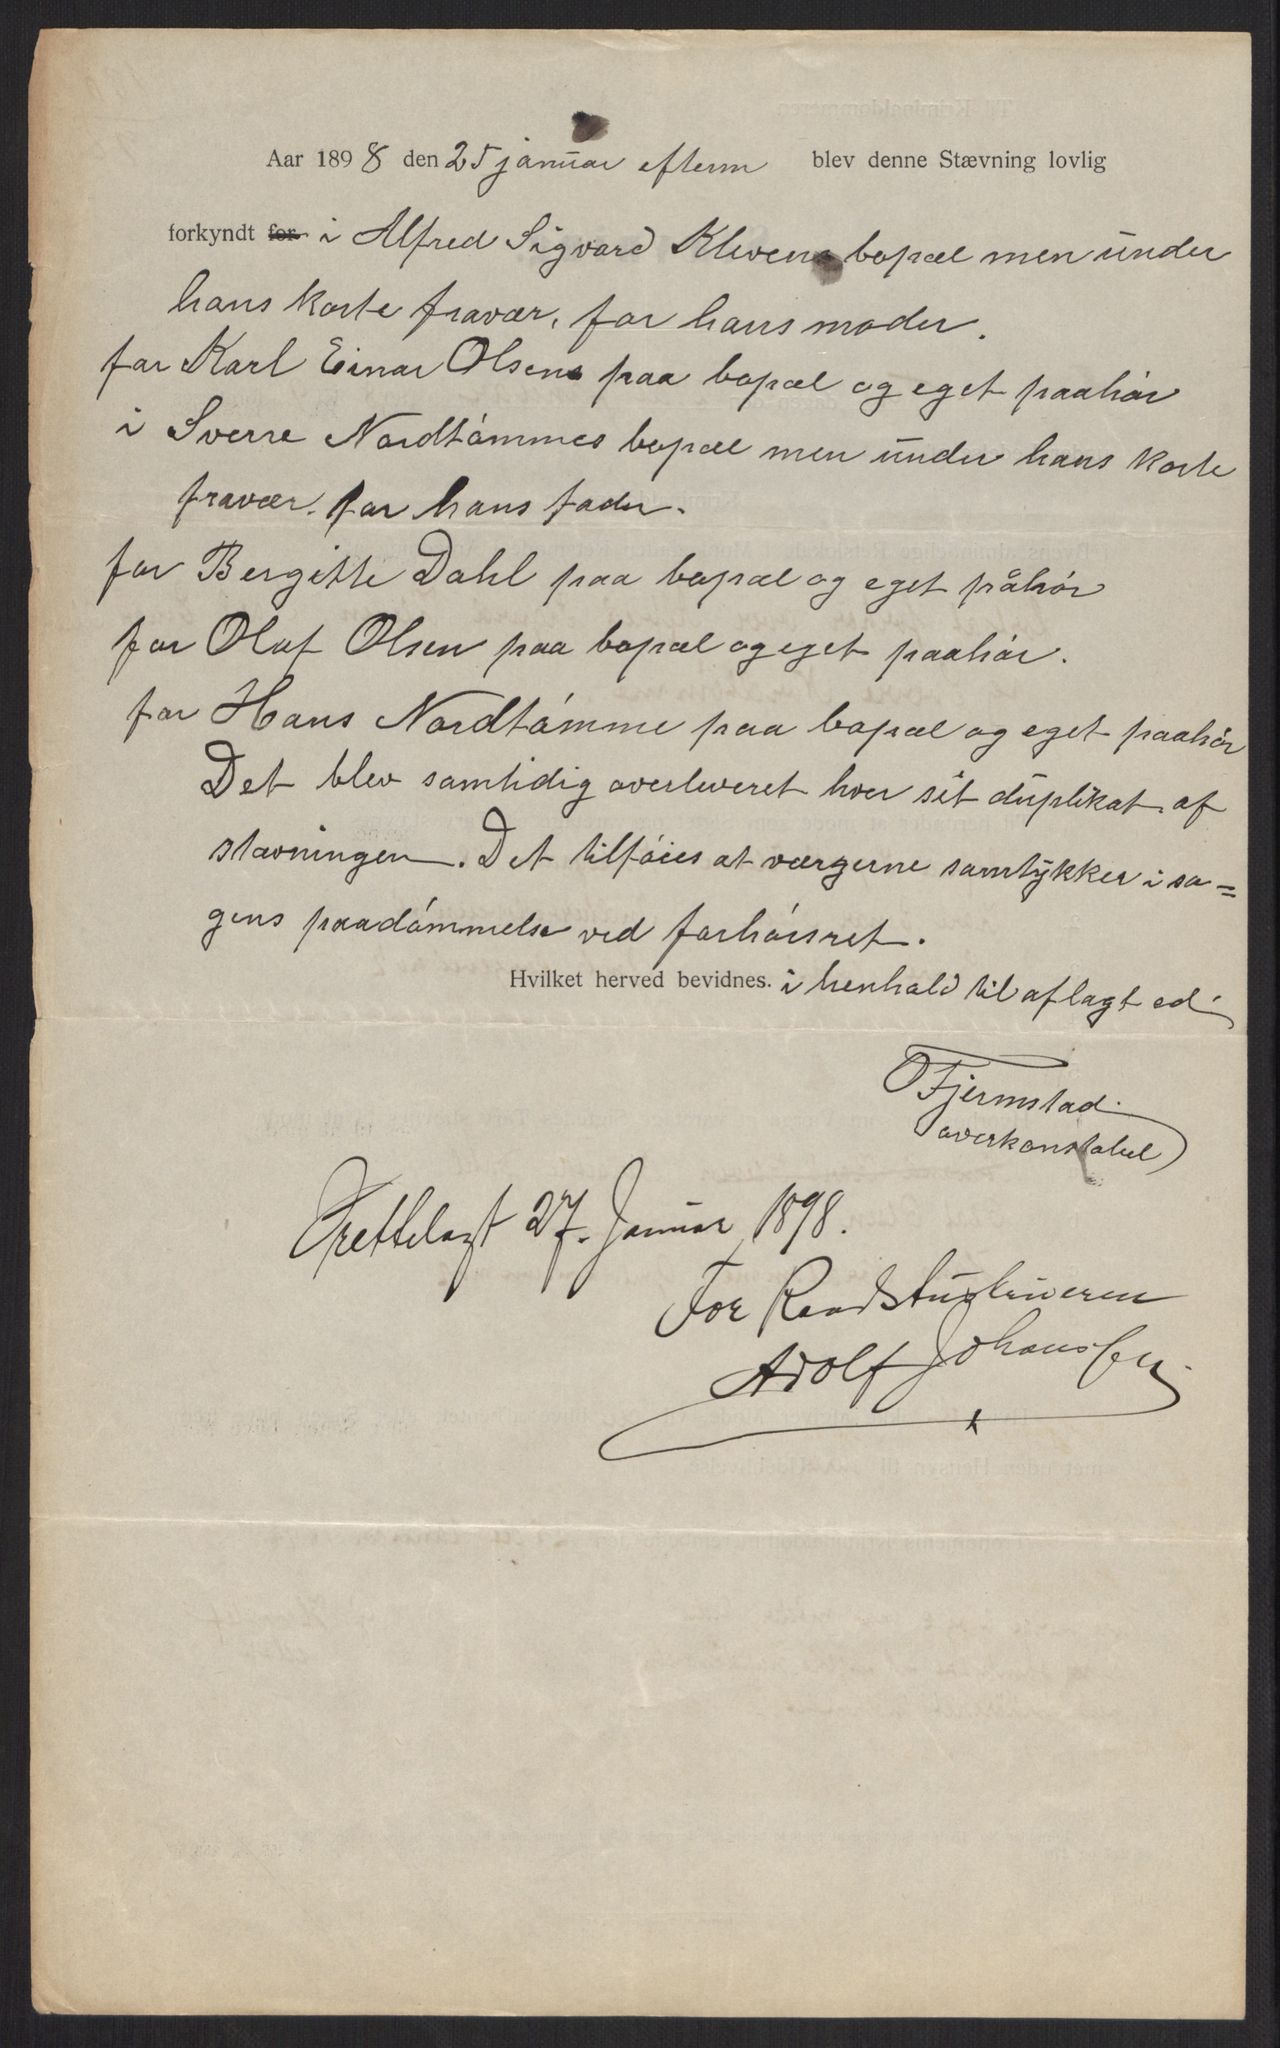 Aar 1898 den 25 januar efterm blev denne Stævning lovlig
forkyndt for i Alfred Sigvard Klevens bopæl men under
hans korte fravær, for hans moder.
for Karl Einar Olsens paa bopæl og eget paahør
i Sverre Nordtømmes bopæl men under hans korte
fravær. for hans fader.
for Bergitte Dahl paa bopæl og eget påhør
for Olaf Olsen paa bopæl og eget paahør.
for Hans Nordtømme paa bopæl og eget paahør
Det blev samtidig overleveret hver sit duplikat af
stævningen. Det tilføies at værgerne samtykker i sa=
gens paadømmelse ved forhørsret.
Hvilket herved bevidnes. i henhold til aflagt ed.
O Fjermstad
overkonstabel
Irettelagt 27. Januar 1898.
For Raadstuskriveren
Adolf Johanssen